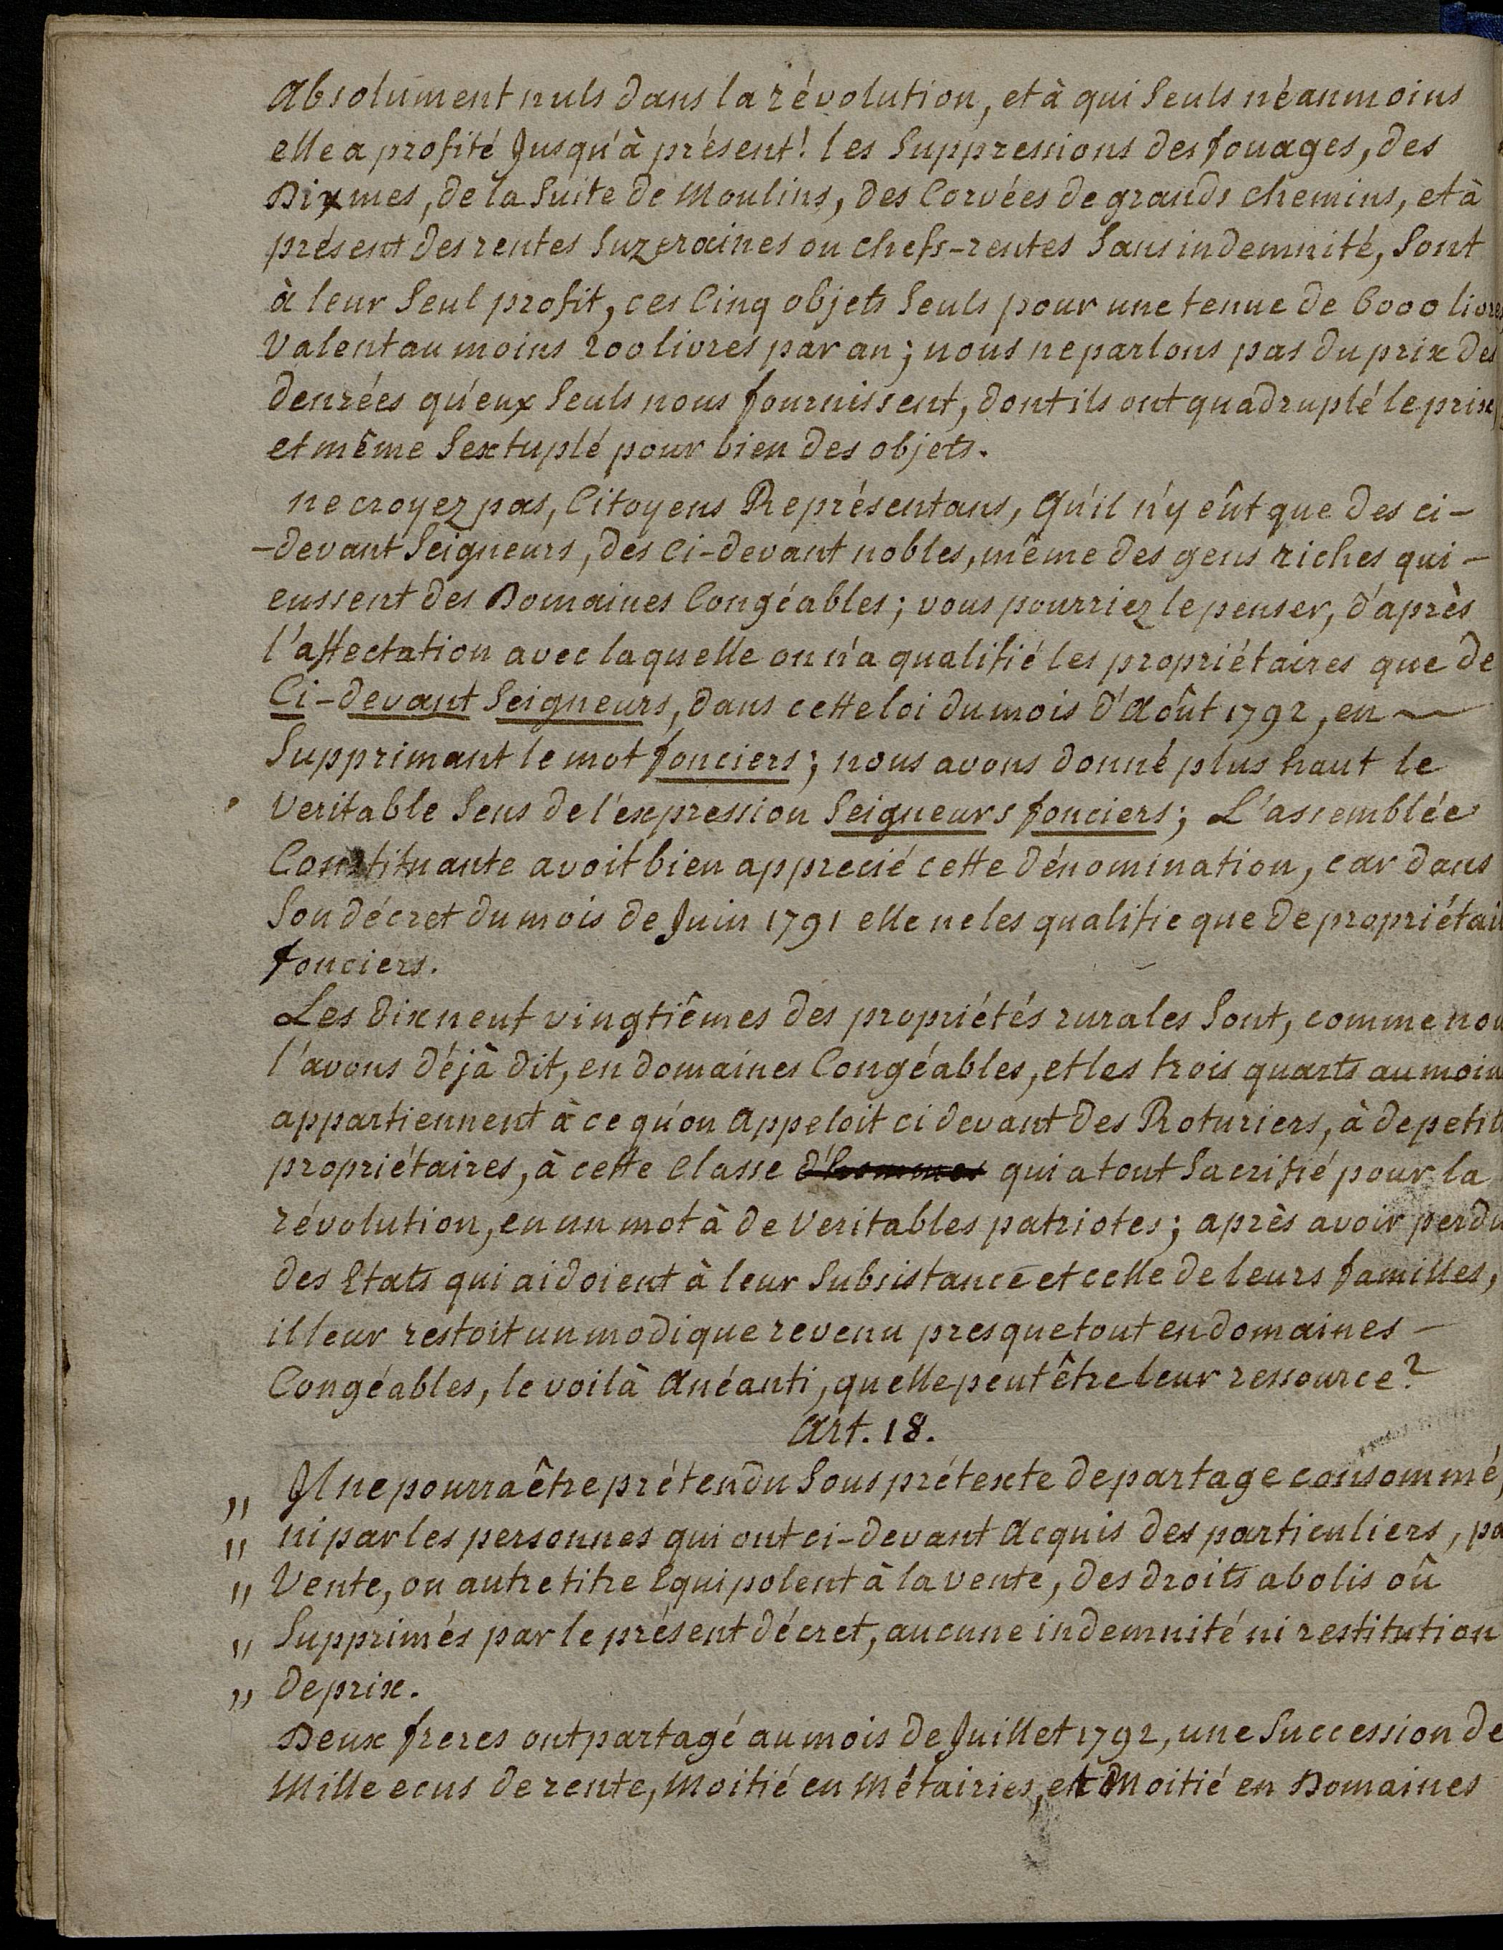 Absolument nuls dans la révolution, et à qui Seuls néanmoins
elle a profité Jusqu'à présent! les Suppressions des fouages, des
Dixmes, de la Suite de Moulins, des Corvées de grands chemins, et à
présent des rentes Suzeraines ou chefs-rentes Sans indemnité, Sont
à leur Seul profit, ces Cinq objets Seuls pour une tenue de 6000 livres
Valent au moins 200 livres par an; nous ne parlons pas du prix des
denrées qu'eux Seuls nous fournissent, dont ils ont quadruplé le prix
et même Sextuplé pour bien des objets.
ne croyez pas, Citoyens Représentans, Qu'il n'y eût que des ci-
-devant Seigneurs, des Ci-devant nobles, même des gens riches qui -
eussent des Domaines Congéables; vous pourriez le penser, d'après
l'affectation avec laquelle on n'a qualifié les propriétaires que de
Ci-devant Seigneurs, dans cette loi du mois d'Août 1792, en ~
Supprimant le mot fonciers; nous avons donné plus haut le
Veritable Sens de l'expression Seigneurs fonciers; L'assemblée
Constituante avoit bien apprecié cette dénomination, car dans
Son décret du mois de Juin 1791 elle ne les qualifie que de propriétai
fonciers.
Les dix neuf vingtiêmes des propriétés rurales Sont, comme nou
l'avons déjà dit, en domaines Congéables, et les trois quarts au moin
appartiennent à ce qu'on Appeloit ci devant des Roturiers, à de petit
propriétaires, à cette Classe d'hommes qui a tout Sacrifié pour la
révolution, en un mot à de Veritables patriotes; après avoir perdu
des Etats qui aidoient à leur Subsistance et celle de leurs familles,
il leur restoit un modique revenu presque tout en domaines -
Congéables, le voilà Anéanti, quelle peut être leur ressource?
Art. 18.
" Il ne pourra être prétendu Sous prétexte de partage consommé,
" ni par les personnes qui ont ci-devant Acquis des particuliers, pa
" Vente, ou autre titre Equipolent à la vente, des droits abolis oû
" Supprimés par le présent décret, aucune indemnité ni restitution
" de prix.
Deux freres ont partagé au mois de Juillet 1792, une Succession de
Mille ecus de rente, Moitié en Métairies, et Moitié en Domaines